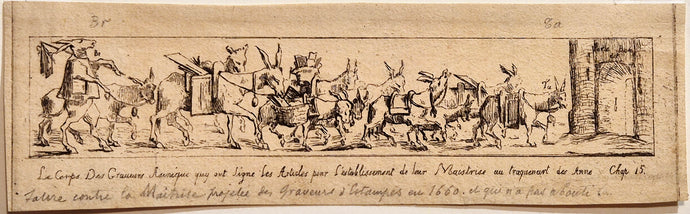 Br 8a
Le Corps Des Graveurs Asnesque quy ont Signe les Articles pour L'establissement de leur Maistrise au traquenart des Asne Chap 15.
Satire contre la Maîtrise projetée des Graveurs d'Estampes en 1660. et qui n'a pas abouti